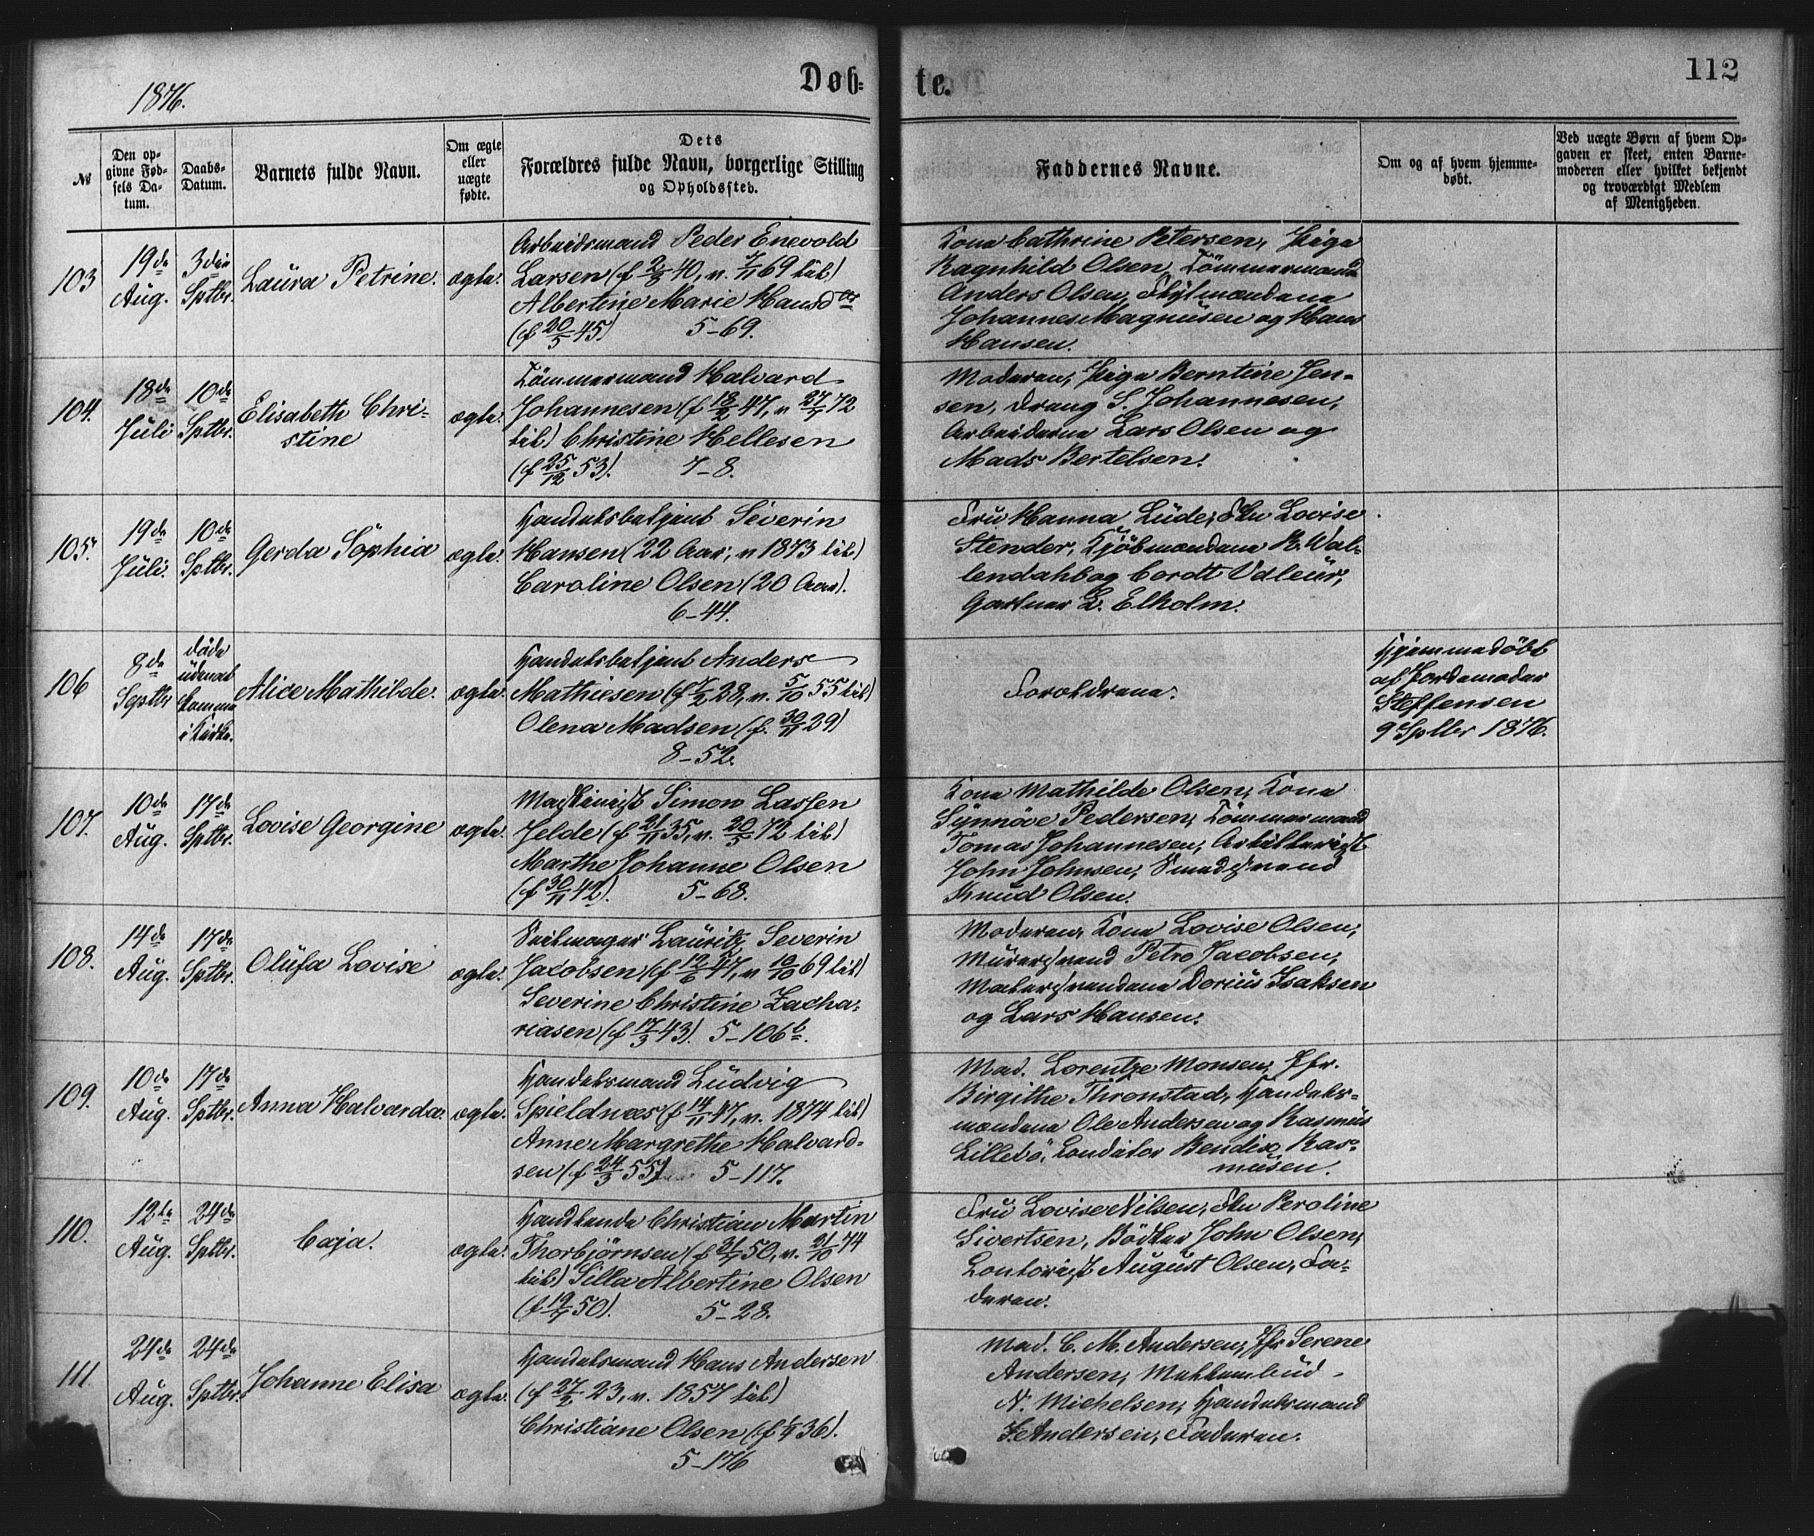 1876.
Døb-
te.
112
№
Den op-
givne Fød-
sels Da-
tum.
Daabs-
Datum.
Barnets fulde Navn.
Om ægte
eller
uægte
fødte.
Dets
Forældres fulde Navn, borgerlige Stilling
og Opholdssted.
Faddernes Navne.
Om og af hvem hjemme-
døbt.
Ved uægte Børn af hvem Op-
gaven er skeet, enten Barne-
moderen eller hvilket bekjendt
og troværdigt Medlem
af Menigheden.
103
19de
Aug.
3die
Sptbr.
Laura Petrine.
ægte.
Arbeidsmand Peder Enevold
Larsen (f 2/3 40, v. 7/11 69 til)
Albertine Marie Hansdtr
(f 20/5 45) 5-69.
Kone Cathrine Petersen, Pige
Ragnhild Olsen, Tømmermand
Anders Olsen,
Johannes Magnusen og Hans
Hansen.
104.
18de
Juli
10de
Sptbr.
Elisabeth Chri-
stine
ægte.
Tömmermand Halvard
Johannesen (f 18/2 47, v 27/5 72
til) Christine Hellesen
(f 25/12 53). 7-8.
Moderen, Pige Berntine Jen-
sen, Dreng S. Johannesen,
Arbeiderne Lars Olsen og
Mads Bertelsen.
105.
19de
Juli.
10de
Sptbr.
Gerda Sophia
ægte.
Handelsbetjent Severin
Hansen (22 Aar, v 1873 til)
Caroline Olsen (20 Aar).
6-44.
Fru Hanna Lüde, Frk Lovise
Stender, Kjöbmændene R. Wal-
lendahl og Cordt Udleur,
Gartner L. Elholm.
106
8de
Septbr
døde
uden at
komme
i Kirke.
Alice Mathilde.
ægte.
Handelsbetjent Anders
Mathiesen (f 7/2 28, v. 5/10 55 til)
Olena Madsen (f. 30/11 29)
8-52.
Forældrene.
Hjemmedöbt
af Jordemoder
Steffensen
9 Sptbr 1876.
107.
10de
Aug.
17de
Sptbr.
Lovise Georgine
ægte.
Maskinist Simon Lassen
Jelde (f 21/11 35, v. 20/5 72 til)
Marthe Johanne Olsen
(f 30/11 42). 5-68.
Kone Mathilde Olsen, Kone
Synnöve Pedersen, Tømmermand
Tomas Johannesen, Artillerist
John Johnsen, Smedsvend
Knud Olsen.
108.
14de
Aug.
17de
Sptbr.
Olufa Lovise
ægte.
Seilmager Lauritz Severin
Jacobsen (f 12/6 47, v 10/10 69 til)
Severine Christine Zacha-
riasen (f 17/3 43). 5-106b.
Moderen, Kone Lovise Olsen,
Murersvend Petro Jacobsen,
Malersvendene Dorius Isaksen
og Lars Hansen.
109.
10de
Aug.
17de
Sptbr.
Anna Halvarda.
ægte.
Handelsmand Ludvig
Spieldnæs (f 14/11 47, v. 1874 til)
Anne Margrethe Halvard-
sen (f 24/3 55) 5-117.
Mad. Lorentze Monsen, Jfr.
Birgithe Thronstad, Handels-
mændene Ole Andersen og Rasmus
Lillebö, Konditor Bendix Ras-
musen.
110.
12te
Aug.
24de
Sptbr.
Caja.
ægte.
Handlende Christian Martin
Thorbjørnsen (f 21/5 50, v. 21/10 74
til) Silla Albertine Olsen
(f 19/5 50). 5-28.
Fru Lovise Nilsen, Frk Peroline
Sivertsen, Bödker John Olsen,
Contorist August Olsen, Fa-
deren.
111
24de
Aug.
24de
Sptbr.
Johanne Elisa
ægte.
Handelsmand Hans Andersen
(f 27/2 23, v. 1857 til)
Christiane Olsen (f 1/4 36).
5-176
Mad. C. M. Andersen, Jfr Serene
Andersen,
N. Michelsen, Handelsmand
Andersen, Faderen.